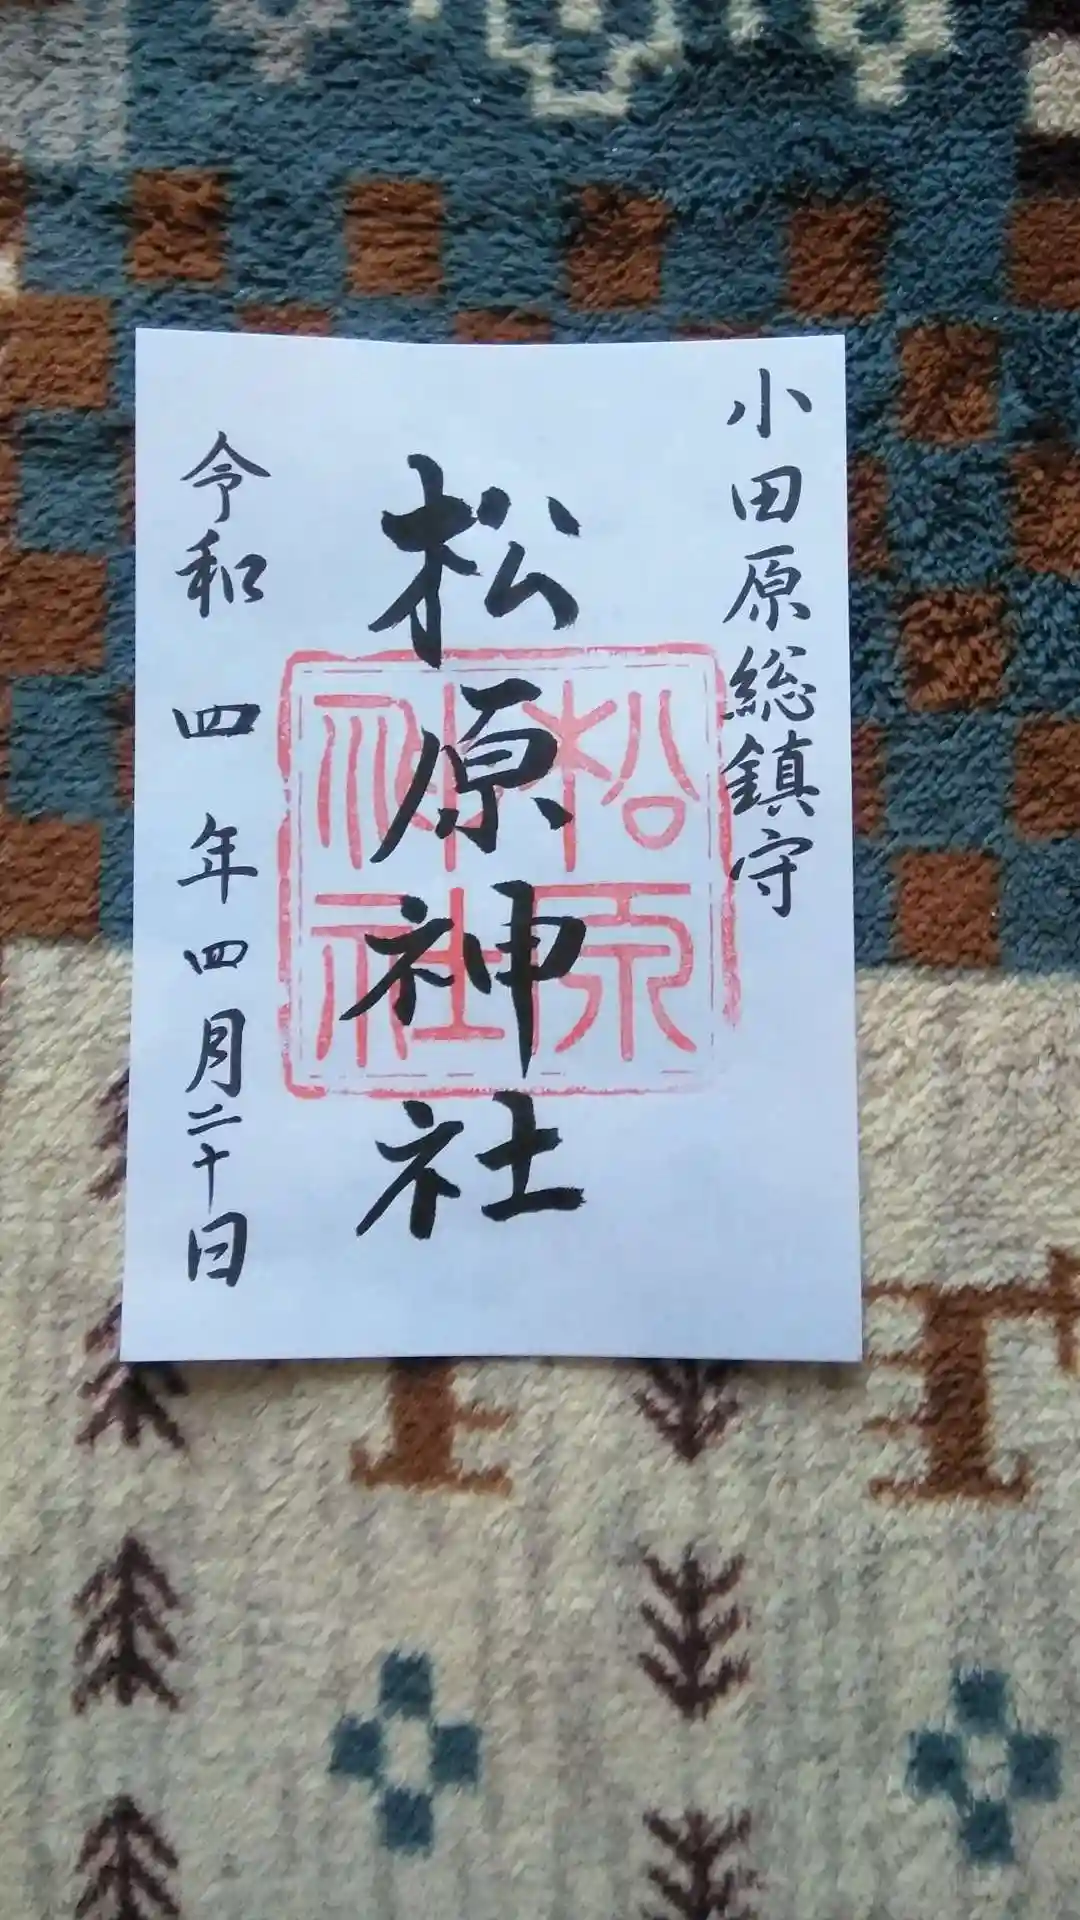 小田原総鎮守
松原神社
松原神社
令和四年四月二十日